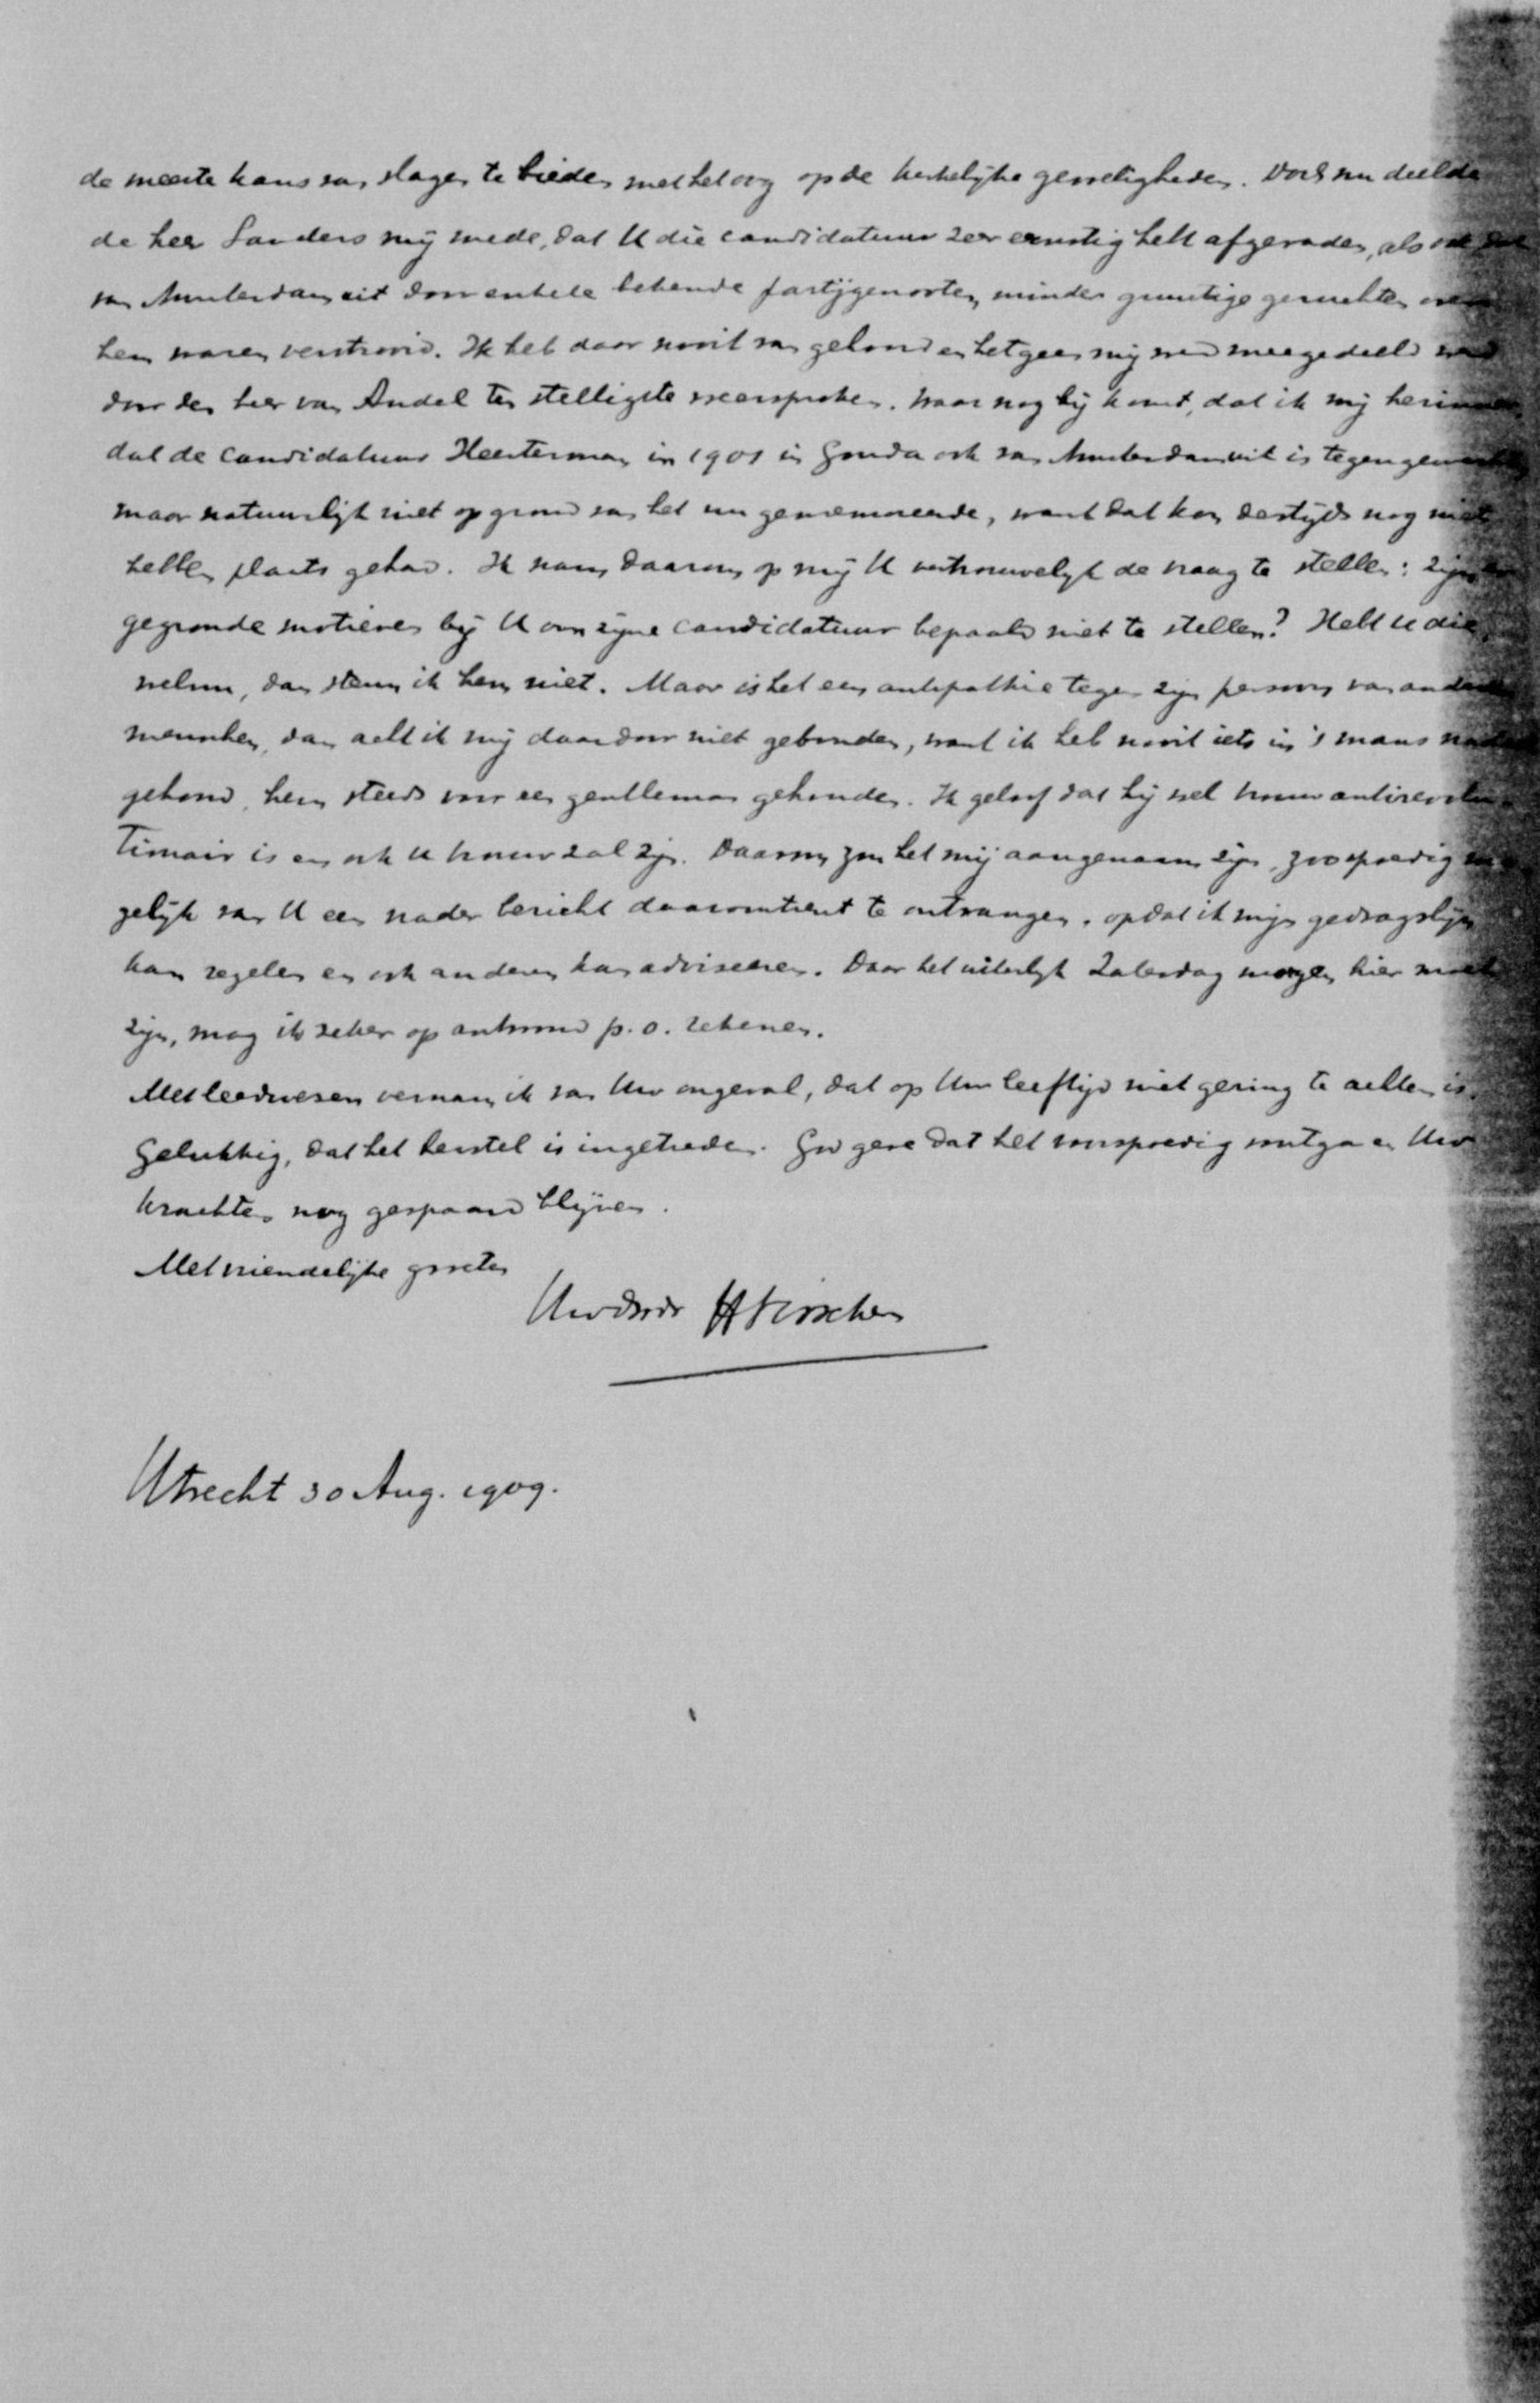 de meeste kans van slagen te bieden met het oog op de kerkelijke gevoeligheden. Doch nu deelde
de heer Sanders mij mede, dat U die candidatuur zeer ernstig hebt afgeraden, als ook dat
van Amsterdam uit door enkele bekende partijgenooten, minder gunstige geruchten over
hem waren verstrooid. Ik heb daar nooit van gehoord en hetgeen mij werd meegedeeld werd
door den heer van Andel ten stelligste weersproken. Waar nog bij komt, dat ik mij herinner,
dat de candidatuur Heesterman in 1901 in Gouda ook van Amsterdam uit is tegengewerkt,
maar natuurlijk niet op grond van het nu genoemde, want dat kon destijds nog niet
hebben plaats gehad. Ik nam daarom op mij U vertrouwelijk de vraag te stellen: zijn er
gegronde motieven bij U om zijne candidatuur bepaald niet te stellen? Hebt U die,
welnu, dan steun ik hem niet. Maar is het een antipathie tegen zijn persoon van andere
menschen, dan acht ik mij daardoor niet gebonden, want ik heb nooit iets in 's mans nadeel
gehoord, hem steeds voor een gentleman gehouden. Ik geloof dat hij wel trouw antirevolu-
tionair is en ook U trouw zal zijn. Daarom zou het mij aangenaam zijn, zoo spoedig mo-
gelijk van U een nader bericht daaromtrent te ontvangen, opdat ik mijn gedragslijn
kan regelen en ook anderen kan adviseeren. Daar het uiterlijk Zaterdag morgen hier moet
zijn, mag ik zeker op antwoord p.o. rekenen.
Met leedwezen vernam ik van Uw ongeval, dat op Uw leeftijd niet gering te achten is.
Gelukkig, dat het herstel is ingetreden. God geve dat het voorspoedig voortga en Uw
krachten nog gespaard blijven.
Met vriendelijke groeten
Uw dwdr H Visscher
Utrecht 30 Aug. 1909.